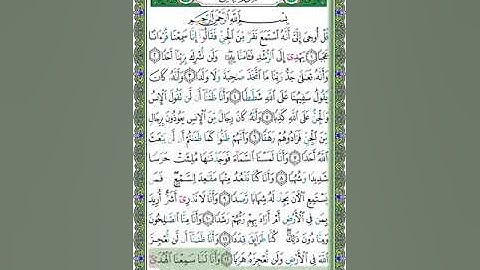 بِسْمِ ٱللَّهِ ٱلرَّحْمَٰنِ ٱلرَّحِيمِ
قُلْ أُوحِىَ إِلَىَّ أَنَّهُ ٱسْتَمَعَ نَفَرٌ مِّنَ ٱلْجِنِّ فَقَالُوٓا۟ إِنَّا سَمِعْنَا قُرْءَانًا
عَجَبًا ١ يَهْدِىٓ إِلَى ٱلرُّشْدِ فَـَٔامَنَّا بِهِۦ وَلَن نُّشْرِكَ بِرَبِّنَآ أَحَدًا ٢
وَأَنَّهُۥ تَعَٰلَىٰ جَدُّ رَبِّنَا مَا ٱتَّخَذَ صَٰحِبَةً وَلَا وَلَدًا ٣ وَأَنَّهُۥ كَانَ
يَقُولُ سَفِيهُنَا عَلَى ٱللَّهِ شَطَطًا ٤ وَأَنَّا ظَنَنَّآ أَن لَّن تَقُولَ ٱلْإِنسُ
وَٱلْجِنُّ عَلَى ٱللَّهِ كَذِبًا ٥ وَأَنَّهُۥ كَانَ رِجَالٌ مِّنَ ٱلْإِنسِ يَعُوذُونَ بِرِجَالٍ
مِّنَ ٱلْجِنِّ فَزَادُوهُمْ رَهَقًا ٦ وَأَنَّهُمْ ظَنُّوا۟ كَمَا ظَنَنتُمْ أَن لَّن يَبْعَثَ
ٱللَّهُ أَحَدًا ٧ وَأَنَّا لَمَسْنَا ٱلسَّمَآءَ فَوَجَدْنَٰهَا مُلِئَتْ حَرَسًا
شَدِيدًا وَشُهُبًا ٨ وَأَنَّا كُنَّا نَقْعُدُ مِنْهَا مَقَٰعِدَ لِلسَّمْعِ فَمَن
يَسْتَمِعِ ٱلْـَٔانَ يَجِدْ لَهُۥ شِهَابًا رَّصَدًا ٩ وَأَنَّا لَا نَدْرِىٓ أَشَرٌّ أُرِيدَ
بِمَن فِى ٱلْأَرْضِ أَمْ أَرَادَ بِهِمْ رَبُّهُمْ رَشَدًا ١٠ وَأَنَّا مِنَّا ٱلصَّٰلِحُونَ
وَمِنَّا دُونَ ذَٰلِكَ كُنَّا طَرَآئِقَ قِدَدًا ١١ وَأَنَّا ظَنَنَّآ أَن لَّن نُّعْجِزَ
ٱللَّهَ فِى ٱلْأَرْضِ وَلَن نُّعْجِزَهُۥ هَرَبًا ١٢ وَأَنَّا لَمَّا سَمِعْنَا ٱلْهُدَىٰٓ